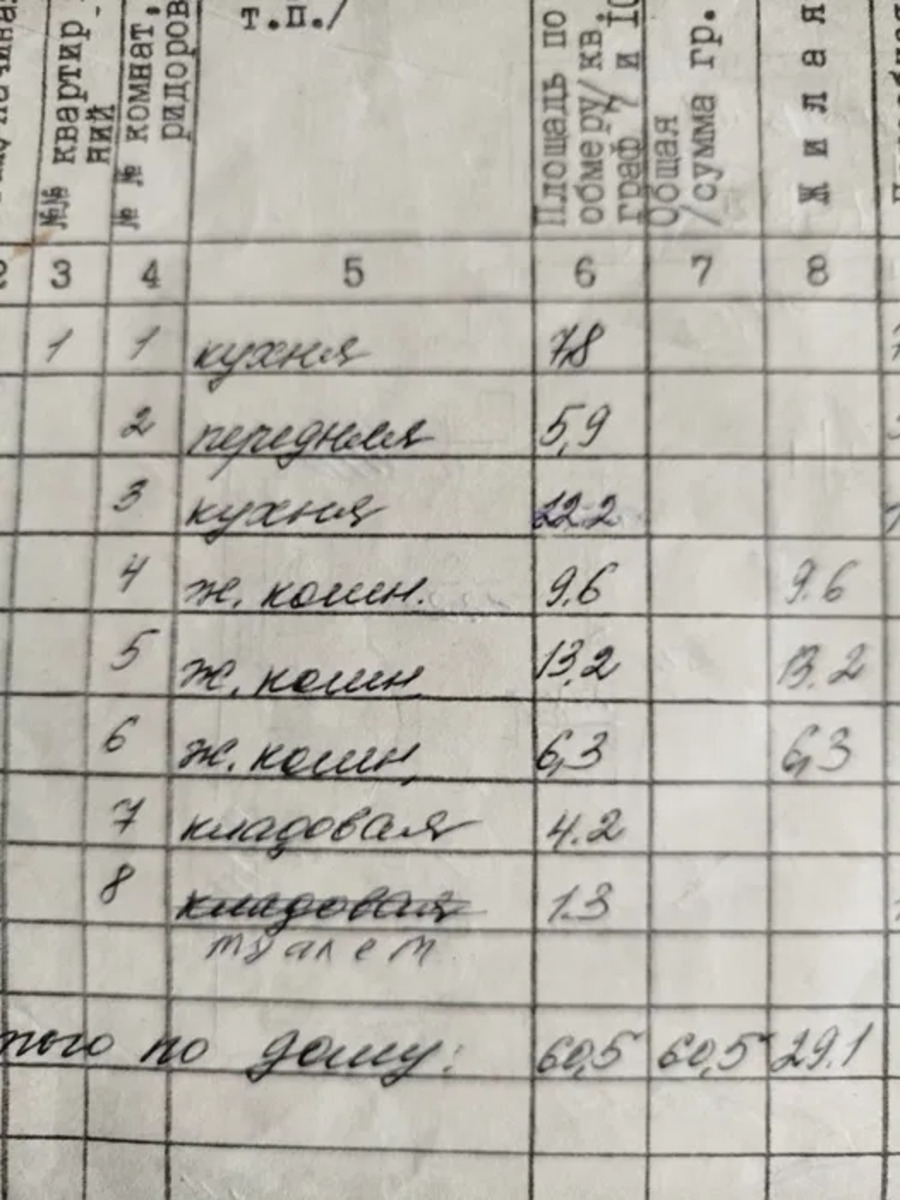 т.п./
№№ квартир
ний
№ № комнат,
ридоров
Площадь по
обмеру/кв
граф 7 и 10
Общая
/сумма гр.
Жилая
3 4 5 6 7 8
1 1 кухня 7,8
2 передняя 5,9
3 кухня 12.2
4 ж. комн. 9.6 9.6
5 ж. комн 13,2 13.2
6 ж. комн, 6,3 6,3
7 кладовая 4.2
8 кладовая 1.3
туалет
того по дому: 60,5 60,5 29.1